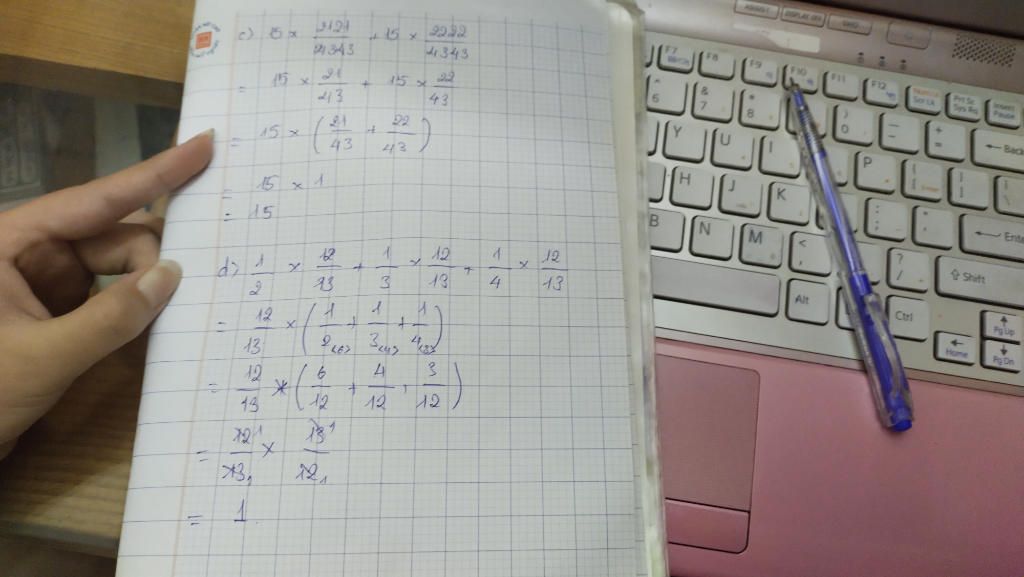 c) 15 × 2121/4343 + 15 × 2222/4343
= 15 × 21/43 + 15 × 22/43
= 15 × (21/43 + 22/43)
= 15 × 1
= 15
d) 1/2 × 12/13 + 1/3 × 12/13 + 1/4 × 12/13
= 12/13 × (1/2(6) + 1/3(4) + 1/4(3))
= 12/13 × (6/12 + 4/12 + 3/12)
= 12 1/13 1 × 13 1/12 1
= 1.
ASSIST DISPLAY OFF VAIO
F7 F8 F9 F10 F11 F12 Scr Lk Prt Sc Sys Rq Insert Pause
^ 6 & 7 * 8 ) 0 _ - + = Back
Y U I P { [ } ] | \
H J K : ; " ' Enter
B N M < , ? / Shift
Alt Ctrl Pg Up
Home Pg Dn